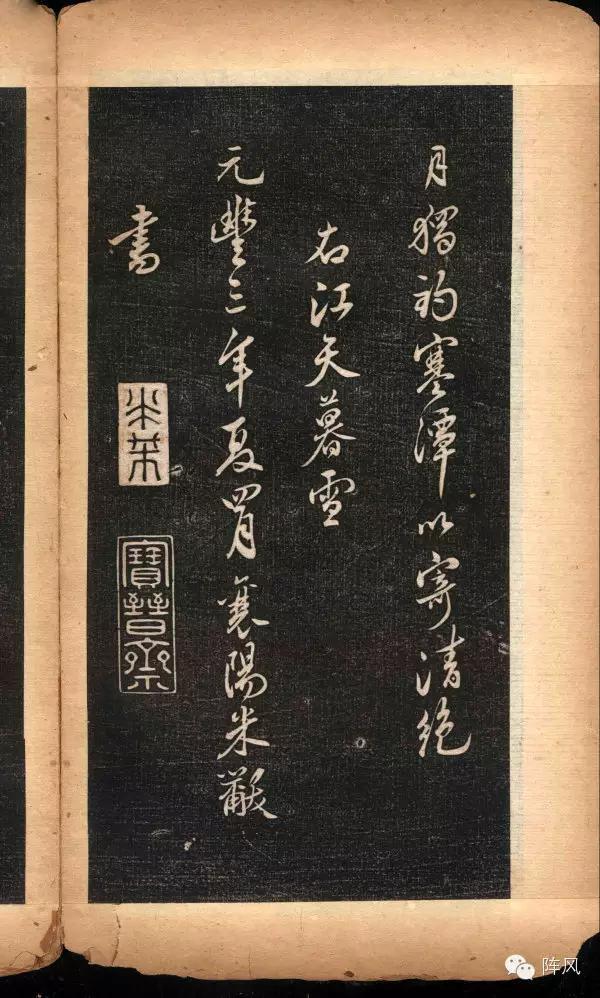 月獨釣寒潭以寄清絕
右江天暮雪
元豐三年夏四月襄陽米黻
書
米芾
寶晉齋
阵风